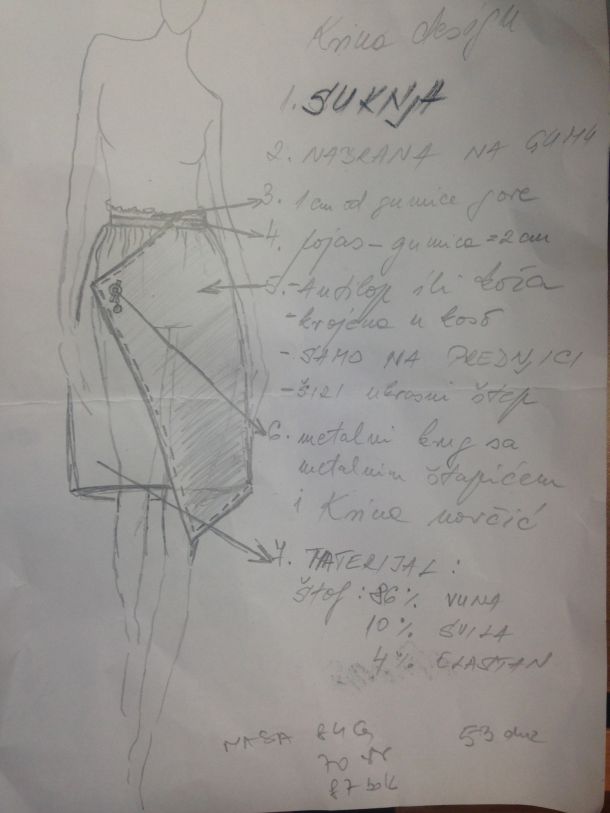 Krina design
1. SUKNJA
2. NABRANA NA GUMU
3. 1 cm od gumice gore
4. pojas - gumica = 2 cm
5. - Antilop ili koža
- krojena u koso
- SAMO NA PREDNJICI
- širi ukrasni štep
6. metalni krug sa
metalnim štapićem
i Krina novčić
7. MATERIJAL :
štof : 86% VUNA
10% SVILA
4% ELASTAN
NASA 84 53 duž
70
87 bok